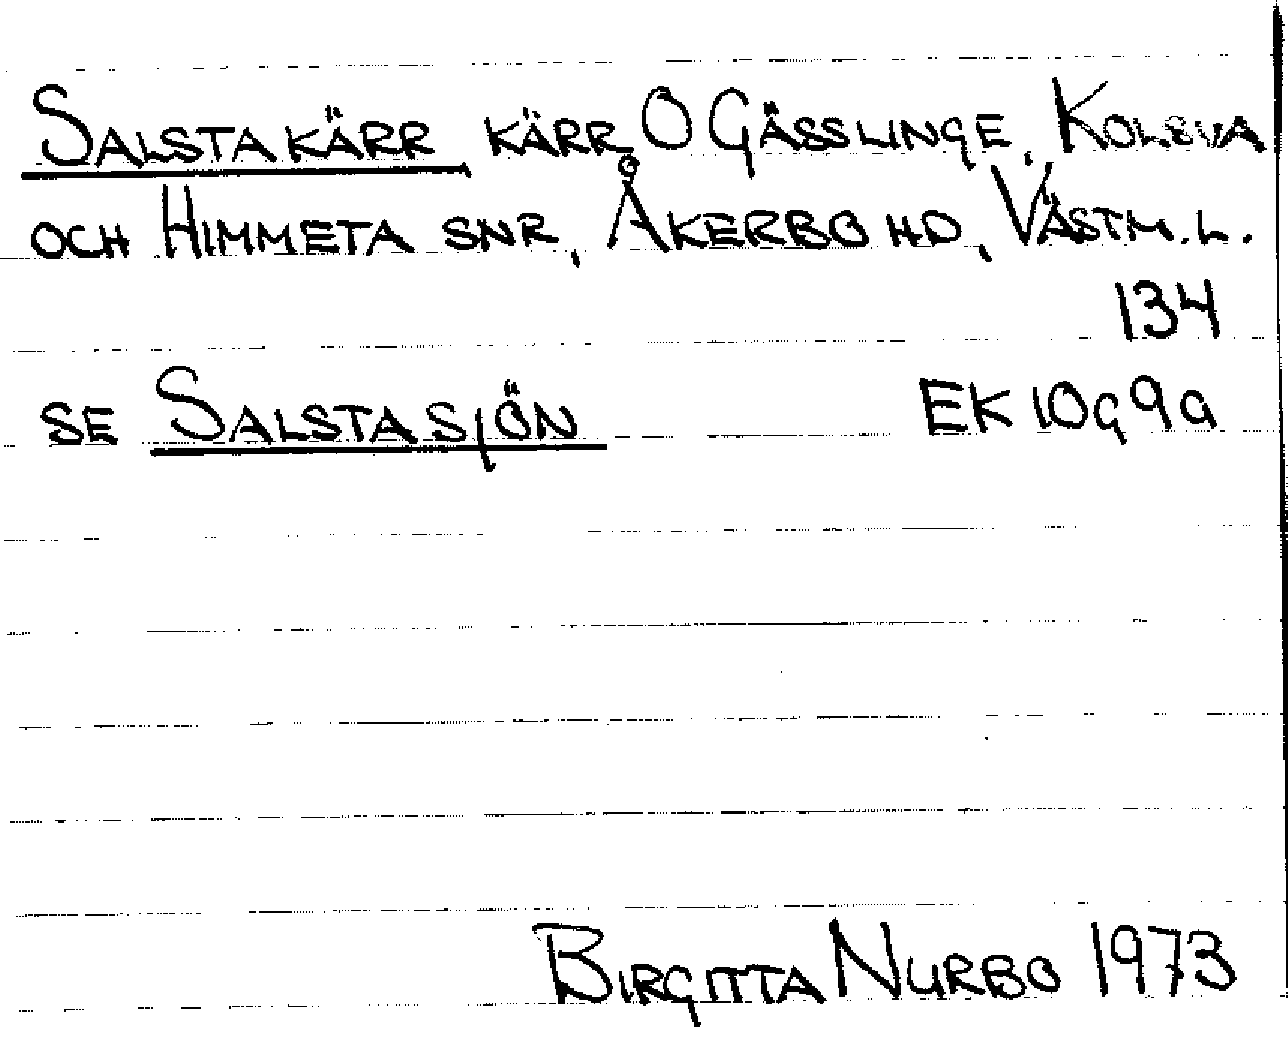 SALSTAKÄRR, KÄRR O GÄSSLINGE, KOLSVA
OCH HIMMETA SNR, ÅKERBO HD, VÄSTM. L.
134
SE SALSTASJÖN EK 10G 9a
BIRGITTA NURBO 1973